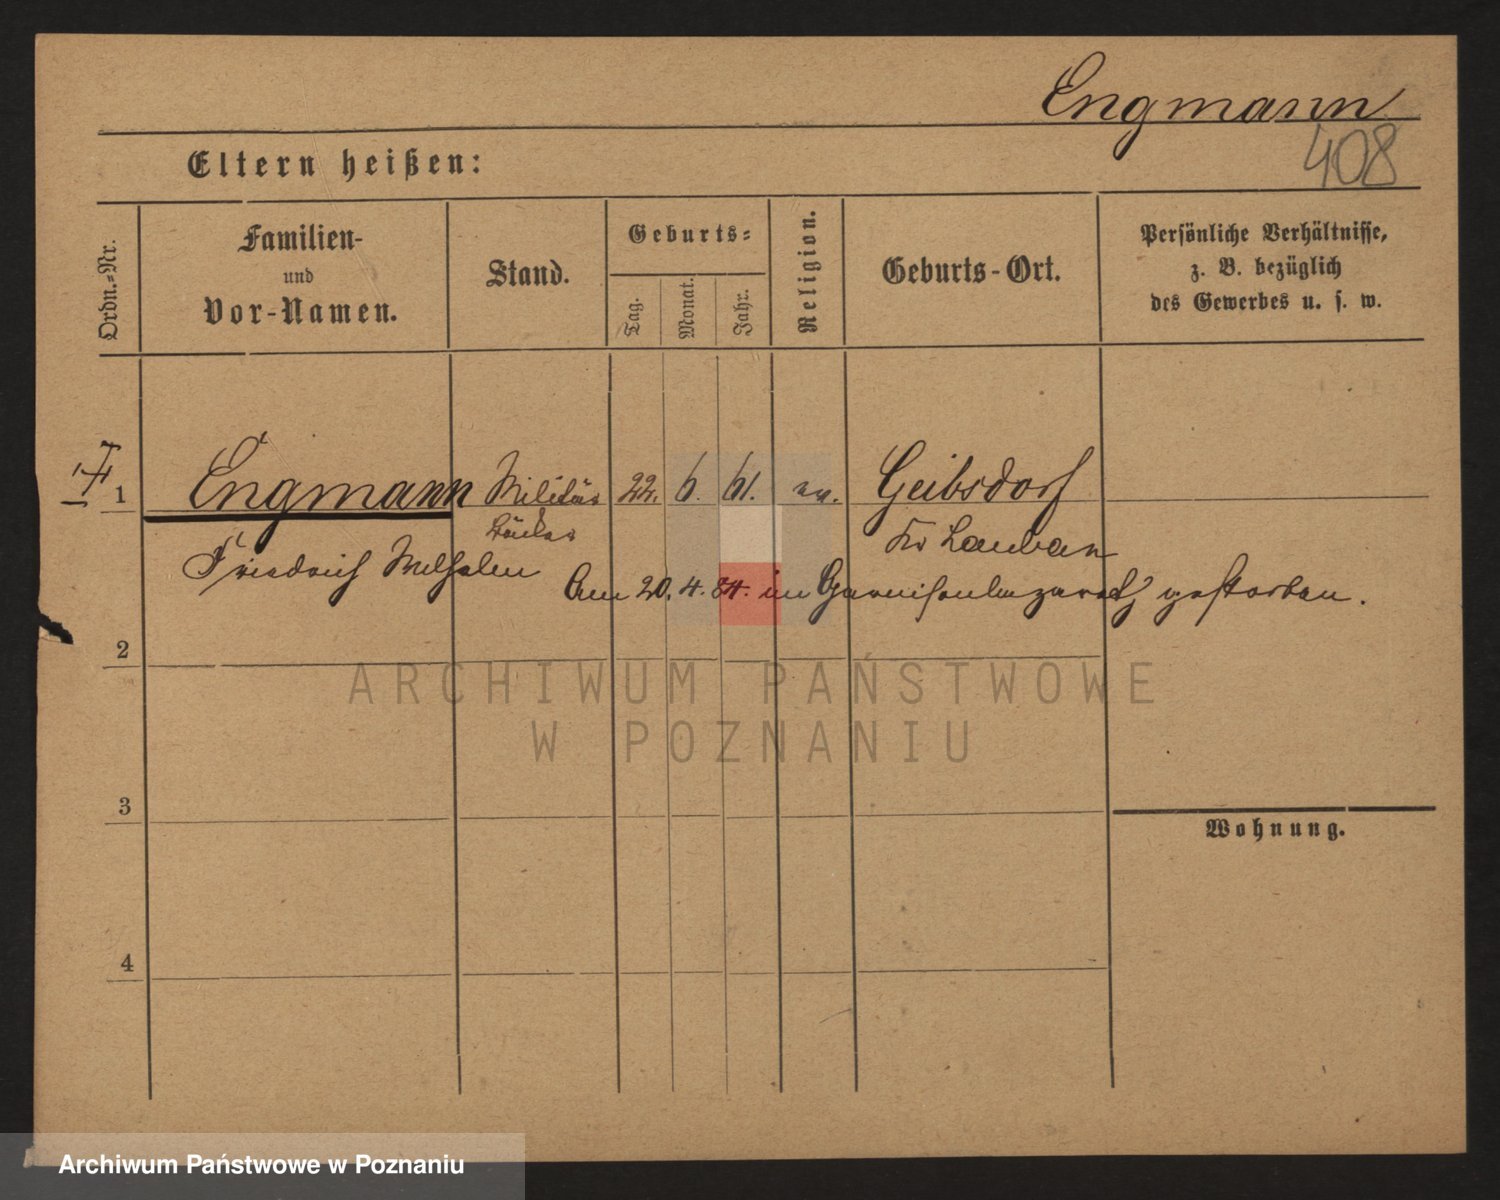 Engmann
408
Eltern heißen:
Ordn.-Nr.
Familien-
und
Vor-Namen.
Stand.
Geburts-
Tag.
Monat.
Jahr.
Religion.
Geburts-Ort.
Persönliche Verhältnisse,
z. B. bezüglich
des Gewerbes u. s. w.
1
Engmann
Militär
22.
6.
61.
ev.
Geibsdorf
Bäcker
Kr Lauban
Friedrich Wilhelm
Am 20.4.84. im Garnisonlazareth gestorben.
2
ARCHIWUM PAŃSTWOWE
W POZNANIU
3
Wohnung.
4
Archiwum Państwowe w Poznaniu